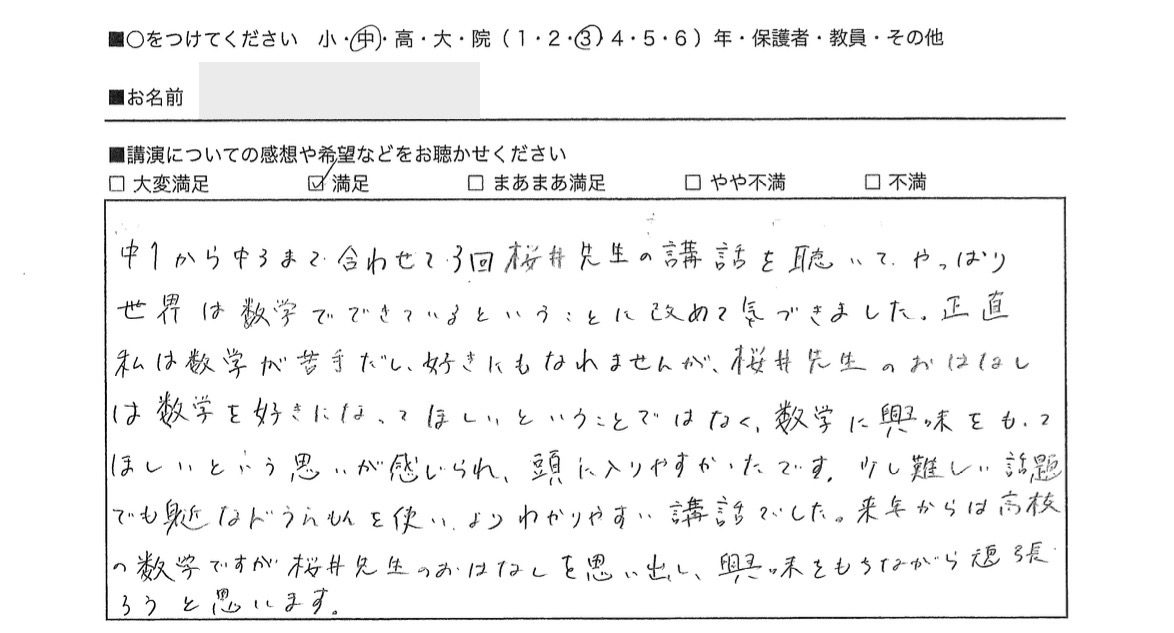 ■○をつけてください 小・中・高・大・院(1・2・3・4・5・6)年・保護者・教員・その他
■お名前
■講演についての感想や希望などをお聴かせください
□ 大変満足 ☑ 満足 □ まあまあ満足 □ やや不満 □ 不満
中1から中3まで合わせて3回桜井先生の講話を聴いて、やっぱり
世界は数学でできているということに改めて気づきました。正直
私は数学が苦手だし、好きにもなれませんが、桜井先生のおはなし
は数学を好きになってほしいということではなく、数学に興味をもって
ほしいという思いが感じられ、頭に入りやすかったです。少し難しい話題
でも身近なドラえもんを使い、よりわかりやすい講話でした。来年からは高校
の数学ですが桜井先生のおはなしを思い出し、興味をもちながら頑張
ろうと思います。